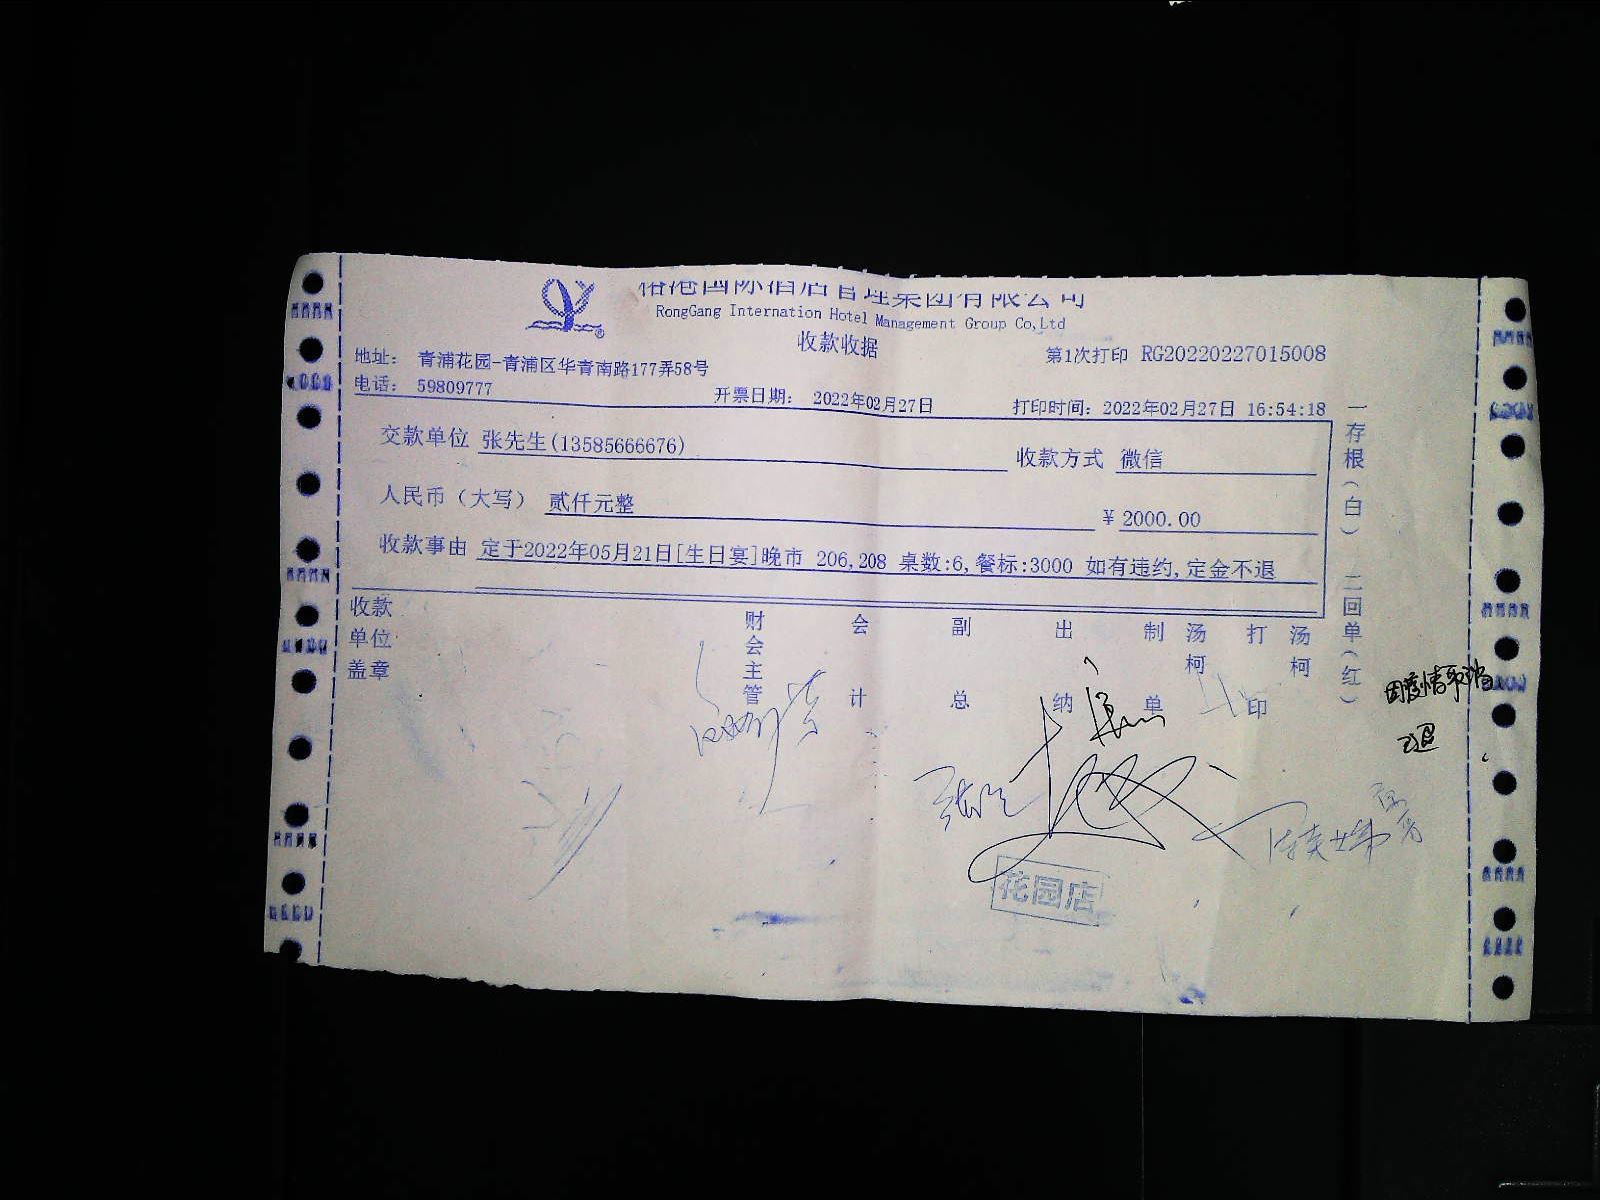 港国际酒店管理集团有限公司
RongGang Internation Hotel Management Group Co,Ltd
收款收据
第1次打印 RG20220227015008
地址: 青浦花园-青浦区华青南路177弄58号
电话: 59809777
开票日期: 2022年02月27日
打印时间: 2022年02月27日 16:54:18
交款单位 张先生(13585666676)
收款方式 微信
人民币（大写） 贰仟元整
¥ 2000.00
收款事由 定于2022年05月21日[生日宴]晚市 206,208 桌数:6,餐标:3000 如有违约,定金不退
一存根(白) 二回单(红)
收款单位盖章
财会主管
会计
副总
出纳
制单
汤柯
打印
汤柯
因疫情取消
已退
花园店